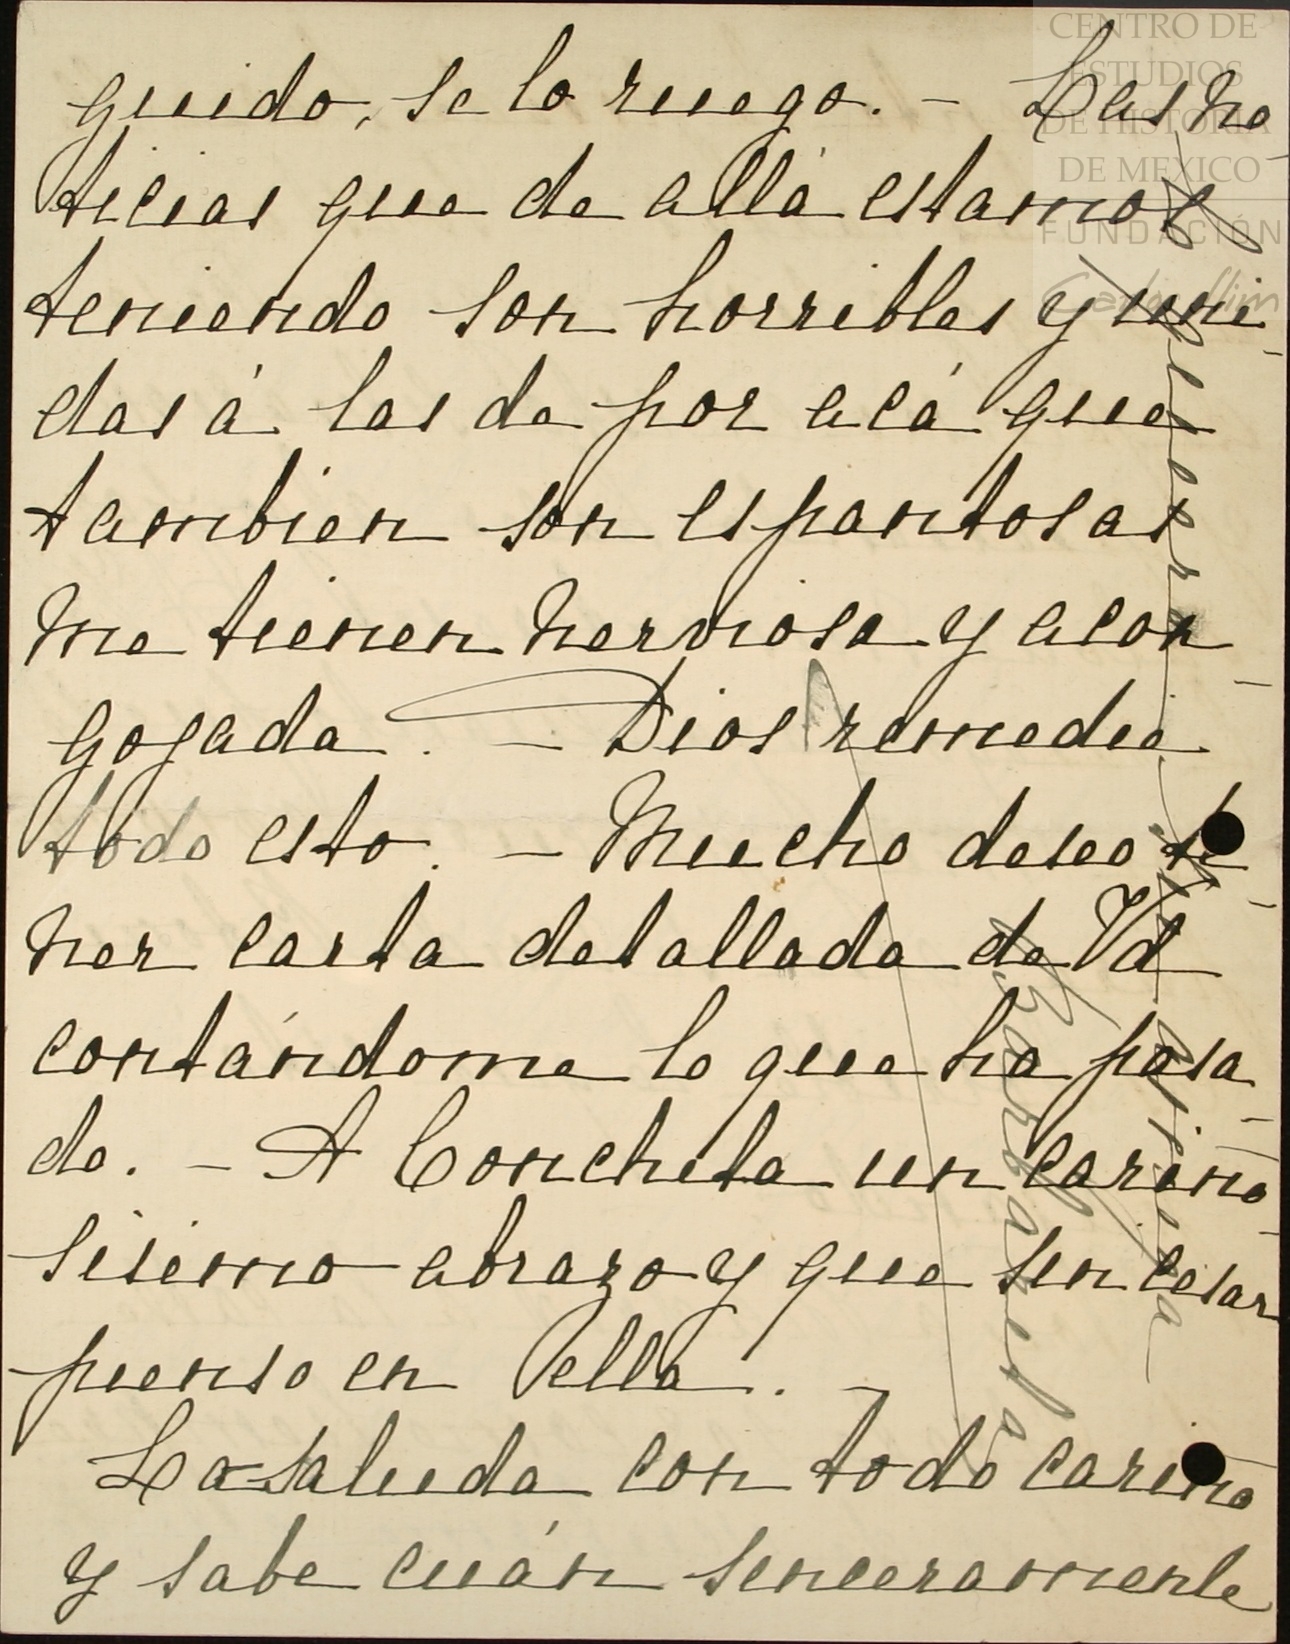 guido, se lo ruego. - Las no
ticias que de allá estamos
teniendo son horribles y uni-
das á las de por acá que
tambien son espantosas
me tienen nerviosa y acon-
gojada. - Dios remedie
todo esto. - Mucho deseo te-
ner carta detallada de Vd
contándome lo que ha pasa-
do. - A Concheta un cariño-
sísimo abrazo y que sin cesar
pienso en ella. -
La saluda con todo cariño
y sabe cuán sinceramente
la quiere su amiga
Barbarita
CENTRO DE
ESTUDIOS
DE HISTORIA
DE MEXICO
FUNDACIÓN
Carlos Slim